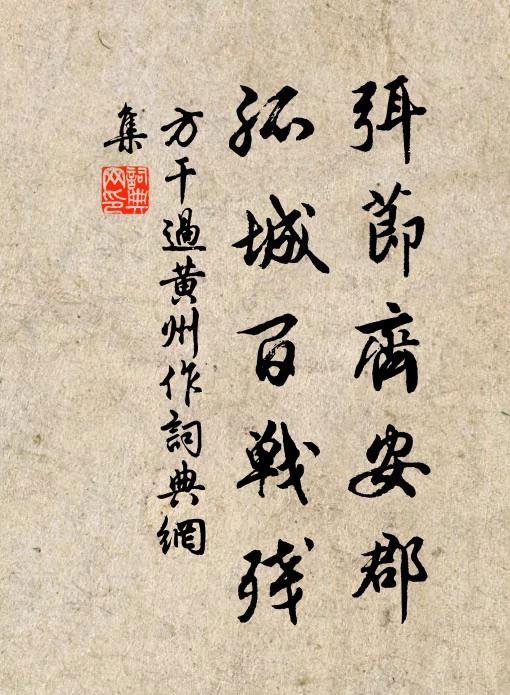 弭節齊安郡
孤城百戰残
方干過黃州作詞典網
集
詞典
网印